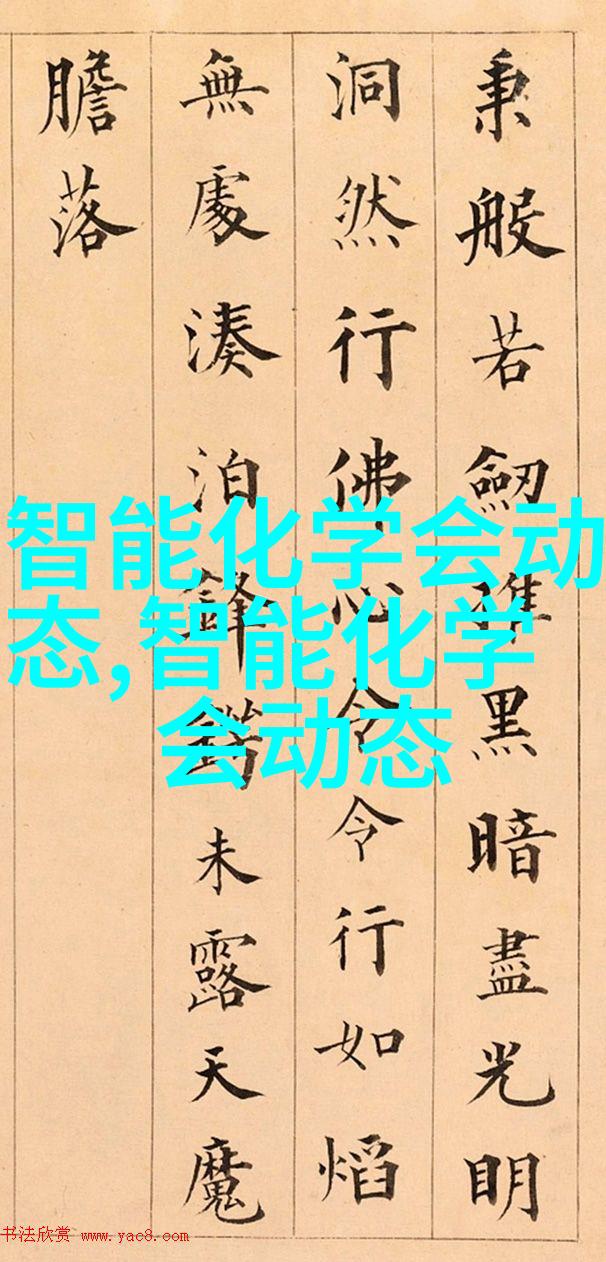 秉般若劒黑暗盡光明
洞然行佛心令令行如熖
無處湊泊鋒未露天魔
膽落
智能化学会动
态,智能化学
会动态
书法欣赏 www.yac8.com